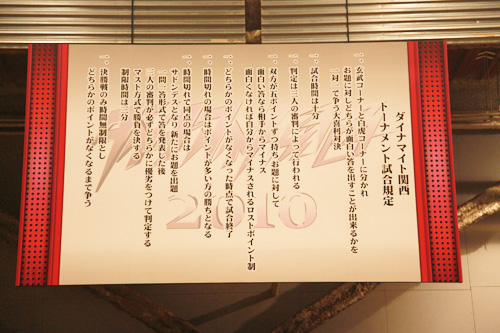 ダイナマイト関西
トーナメント試合規定
一、玄武コーナーと白虎コーナーに分かれ
お題に対しどちらが面白い答を出すことが出来るかを
一対一で争う大喜利対決
一、試合時間は十分
一、判定は三人の審判によって行われる
一、双方が五ポイントずつ持ちお題に対して
面白い答なら相手からマイナス
面白くなければ自分からマイナスされるロストポイント制
一、どちらかのポイントがなくなった時点で試合終了
一、時間切れの場合はポイントが多い方の勝ちとなる
一、時間切れで同点の場合は
サドンデスとなり新たにお題を出題
一問一答形式で答を発表した後
三人の審判が必ずどちらかに優劣をつけて判定する
マスト方式で勝負を決する
制限時間は三分
一、決勝戦のみ時間無制限とし
どちらかのポイントがなくなるまで争う
2010